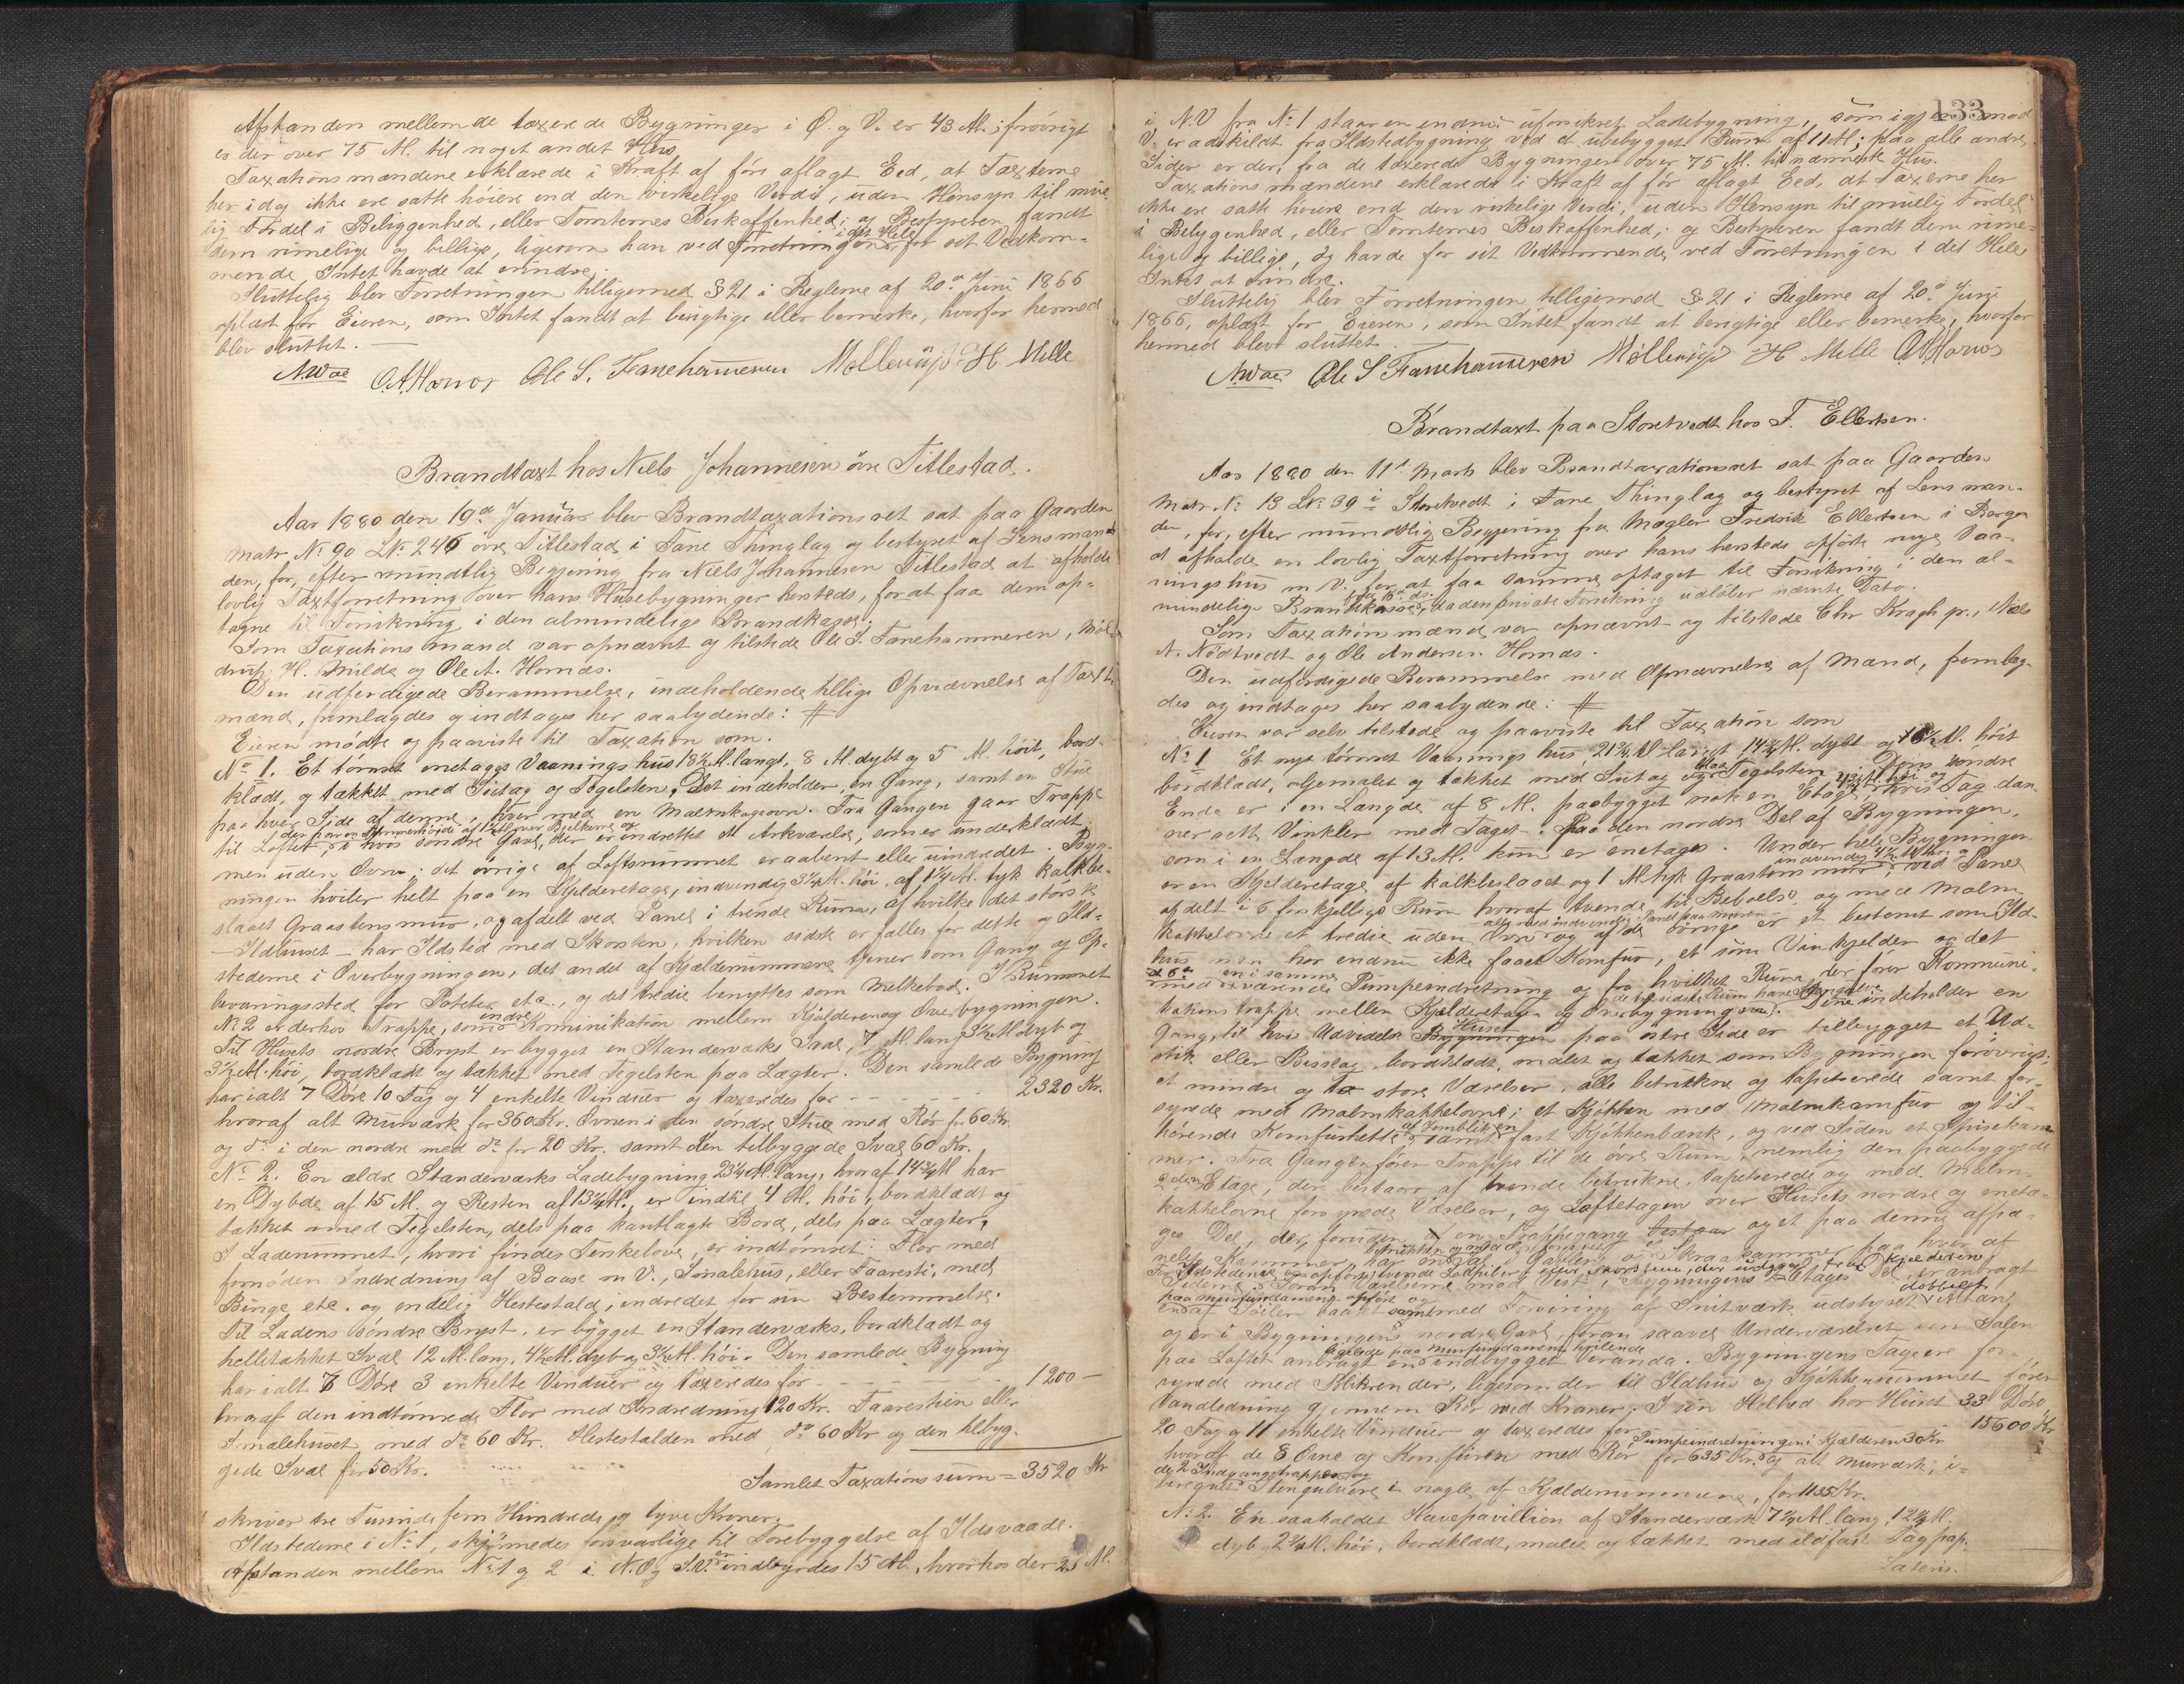 Afstanden mellem de taxerede Bygninger i Ø. og V. er 43 Al. iforövrigt
er der over 75 Al. til noget andet Hus
Taxationsmændene erklærede i Kraft af för aflagt Eed, at Taxterne
her idag ikke ere satte höiere end den virkelige Verdi, uden Hensyn til mue-
lig Fordel i Beliggenhed, eller Tomternes Beskaffenhed; og Bestyreren fandt
dem rimelige og billige, ligesom han ved Forretningen i det Hele for sit Vedkom-
mende Intet havde at erindre.
Sluttelig blev Forretningen tilligemed § 21 i Reglerne af 20de Juni 1866
oplæst for Eieren, som Intet fandt at berigtige eller bemerke, hvorfor hermed
blev sluttet. —
O.A.Hornes Ole S. Fanehammeren Möllerup H Milde
Brandtaxt hos Niels Johannesen övre Titlestad.
Aar 1880 den 19de Januar blev Brandtaxationsret sat paa Gaarden
Matr. No 90 LNo 246 övre Titlestad i Fane Thinglag og bestyret af Lensman-
den, for, efter mundtlig Begjæring fra Niels Johannesen Titlestad at afholde
lovlig Taxtforretning over hans Husebygninger hersteds, for at faa dem op-
tagne til Forsikring i den almindelige Brandkasse.
Som Taxationsmænd var opnævnt og tilstede Ole S. Fanehammeren, Möl-
drup, H. Milde og Ole A. Hornes.
Den udferdigede Berammelse, indeholdende tillige Opnævnelse af Taxt-
mænd, fremlagdes og indtages her saalydende: #
Eieren mödte og paaviste til Taxation som.
No 1. Et tömret enetages Vaaningshus 18½ Al. langt, 8 Al. dybt og 5 Al. höit, bord-
klædt, og tækket med Sutag og Tegelsten. Det indeholder, en Gang, samt en Stue
paa hver Side af denne, hver med en Malmkageovn. Fra Gangen gaar Trappe
til Loftet, i hvis söndre Gavl, der er indrettet et Arkværelse, som er underklædt,
men uden Ovn; det övrige af Loftsrummet er aabent eller uindredet. Byg-
ningen hviler helt paa en Kjelderetage, indvendig 3¼ Al. höi, af 1¼ Al. tyk kalkbe-
slaaet Graastensmur, og afdelt ved Panel i trende Rum, af hvilke det störste
— Ildhuset — har Ildsted med Skorsten, hvilken sidste er fælles for dette og Ild-
stederne i Overbygningen, det andet af Kjælderrummene tjener som Gang og Op-
bevaringssted for Poteter etc., og det tredie benyttes som Melkebod. I Rummet
No 2 er derhos Trappe, som indre Kominikation mellem Kjælderen og Overbygningen.
Til Husets nordre Bryst er bygget en Standerværks Sval, 7 Al. lang 3½ Al. dyb og
3½ Al. höi, bordklædt og tækket med Tegelsten paa Lægter. Den samlede Bygning
har ialt 7 Döre 10 Fag og 4 enkelte Vinduer og taxeredes for - - - - - 2320 Kr.
hvoraf alt Murværk for 360 Kr. Ovnen i den söndre Stue med Rör for 60 Kr.
og do i den nordre med do for 20 Kr. samt den tilbyggede Sval 60 Kr.
No 2. En ældre Standerværks Ladebygning 23¼ Al. lang, hvoraf 14¾ Al har
en Dybde af 15 Al. og Resten af 13¼ Al., er indtil 4 Al. höi, bordklædt og
tækket med Tegelsten, dels paa kantlagte Bord, dels paa Lægter.
I Laderummet, hvori findes Tenkelove, er indtömret: Flor med
fornöden Indredning af Baase m V., Smalehus, eller Faaresti, med
Binge etc. og endelig Hestestald, indredet for sin Bestemmelse.
Til Ladens söndre Bryst, er bygget en Standerværks, bordklædt og
helletækket Sval 12 Al. lang, 4½ Al. dyb og 3½ Al. höi. Den samlede Bygning
har ialt 7 Döre 3 enkelte Vinduer og taxeredes for - - - - - 1200 —
hvoraf den indtömrede Flor med Indredning 120 Kr. Faarestien eller
Smalehuset med do 60 Kr. Hestestalden med do 60 Kr og den tilbyg-
gede Sval for 50 Kr.
Samlet Taxationssum = 3520 Kr
skriver tre Tusinde fem Hundrede og tyve Kroner.
Ildstederne i No 1, skjönnedes forsvarlige til Forebyggelse af Ildsvaade.
Afstanden mellem No 1 og 2 i N.O. og S.V. er indbyrdes 15 Al., hvorhos der 25 Al.
133
i N.V fra No 1 staar en endnu uforsikret Ladebygning, som igjen mod
V. er adskildt fra Ildstedbygning ved et ubebygget Rum af 11 Al; paa alle andre
Sider er der, fra de taxerede Bygninger over 75 Al. til nærmeste Hus.
Taxationsmændene erklærede i Kraft af för aflagt Eed, at Taxerne her
ikke ere satte höiere end den virkelige Verdi, uden Hensyn til muelig Fordel
i Beliggenhed, eller Tomternes Beskaffenhed; og Bestyreren fandt dem rime-
lige og billige, og havde for sit Vedkommende ved Forretningen i det Hele
Intet at erindre.
Sluttelig blev Forretningen tilligemed § 21 i Reglerne af 20de Juni
1866, oplæst for Eieren, som Intet fandt at berigtige eller bemerke, hvorfor
hermed blev sluttet.
Ole S Fanehammeren Möllerup H Milde O.A.Hornes
Brandtaxt paa Storetvedt hos F. Ellertsen.
Aar 1880 den 11te Marts blev Brandtaxationsret sat paa Gaarden
Matr No 13 LNo 39 i Storetvedt i Fane Thinglag og bestyret af Lensman-
den, for, efter mundtlig Begjering fra Mægler Fredrik Ellertsen i Bergen
at afholde en lovlig Taxtforretning over hans hersteds opförte nye Vaa-
ningshus m V. for at faa samme optaget til Forsikring i den al-
mindelige Brandkasse, da den private Forsikring udlöber nævnte Dato.
Som Taxationsmænd var opnævnt og tilstede Chr Kragh p., Niels
N. Nödtvedt og Ole Andersen Hornes.
Den udferdigede Berammelse med Opnævnelse af Mænd, fremlag-
des og indtages her saalydende: #
Eieren var selv tilstede og paaviste til Taxation som
No 1 Et nyt tömret Vaanings hus, 21¾ Al langt 14¾ Al. dybt og 6½ Al. höit
bordklædt, oljemalet og tækket med Sutag og Tegelsten. I Dens söndre
Ende er i en Længde af 8 Al. paabygget nok en Etage, hvis Tag dan-
ner rette Vinkler med Taget paa den nordre Del af Bygningen,
som i en Længde af 13 Al. kun er enetages. Under hele Bygningen
er en Kjelderetage af kalkbeslaaet og 1 Al. tyk Graastens mur, ved Panel
afdelt i 6 forskjellige Rum hvoraf tvende til Beboelse og med Malm-
kakkelovne et tredie uden Ovn og af de övrige er et bestemt som Ild-
hus men har endnu ikke faaet Komfur, et som Vinkjelder og det
6te med værende Pumpeindretning og fra hvilket Rum der förer Kommuni-
kationstrappe mellem Kjelderetagen og Overbygningen. Denne indeholder en
Gang, til hvis Udvidelse Huset paa östre Side er tilbygget et Ud-
stik eller Bislag, bordklædt, malet og tækket som Bygningen forövrigt;
et mindre og to store Værelser, alle betrukne og tapetserede samt for-
synede med Malmkakkelovne; et Kjökken med Malmkomfur og til-
hörende Komfurhette af Jernblik, samt fast Kjökkenbænk, og ved Siden et Spisekam-
mer. Fra Gangen förer Trappe til de övre Rum, nemlig den paabyggede
2den Etage, der bestaar af tvende betrukne, tapetserede og med Malm-
kakkelovne forsynede Værelser, og Loftetagen over Husets nordre og eneta-
ges Del, der, foruden en Trappegang og et paa denne afpa-
nelet Kammer, har
paa Loftet anbragt en indbygget Veranda. Bygningens Tage ere for-
synede med Blikrender, ligesom der til Ildhus og Kjökkenrummet förer
Vandledning gjennem Rör med Kraner. I sin Helhed har Huset 33 Döre,
20 Fag og 11 enkelte Vinduer og taxeredes for 15600 Kr
hvoraf de 8 Ovne og Komfuren med Rör for 635 Kr. og alt Murværk, i-
beregnet Stengulvene i nogle af Kjælderrummene, for 1135 Kr.
No 2. En saakaldet Havepavillion af Standerværk 7¼ Al. lang, 12¾ Al.
dyb 2¾ Al. höi, bordklædt, malet og tækket med ildfast Tagpap.
Lateris.